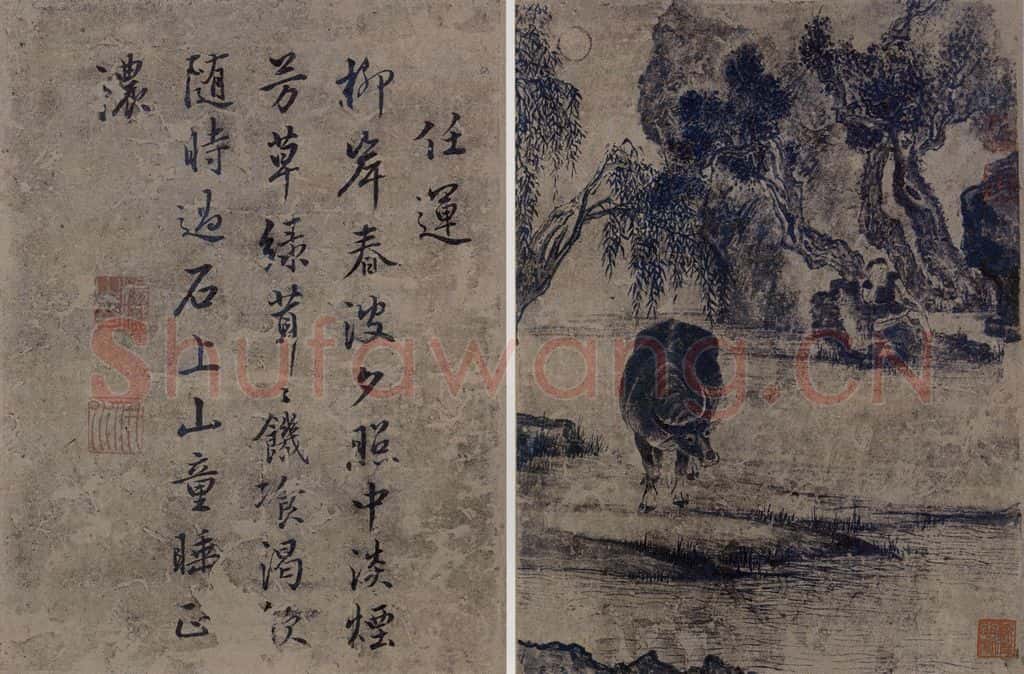 任運
柳岸春波夕照中淡煙
芳草綠茸〻饑飡渴飲
隨時過石上山童睡正
濃
Shufawang.CN